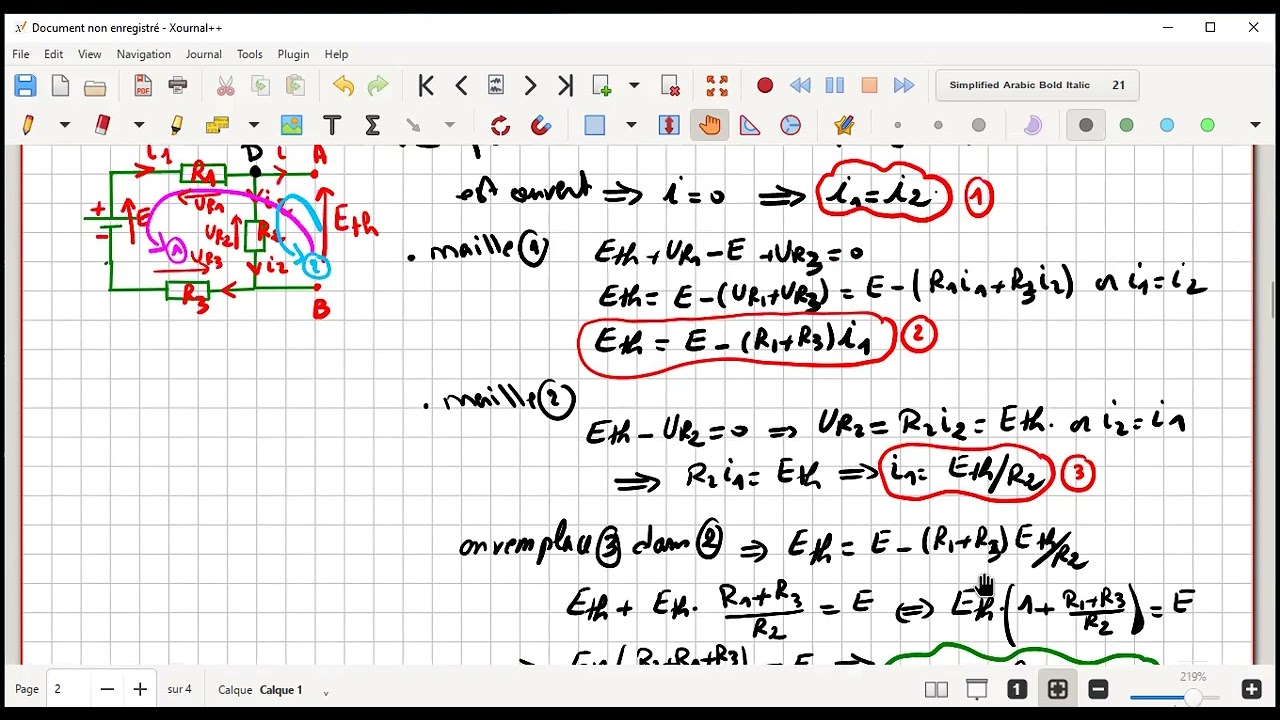 Document non enregistré - Xournal++
File Edit View Navigation Journal Tools Plugin Help
Simplified Arabic Bold Italic 21
i1 R1 D i A
UR1
+ E - UR2 R2 Eth
1 UR3 i2 2
R3 B
est ouvert ⟹ i = 0 ⟹ i1 = i2 ①
. maille ① Eth + UR1 - E + UR3 = 0
Eth = E - (UR1 + UR3) = E - (R1 i1 + R3 i2) or i1 = i2
Eth = E - (R1 + R3) i1 ②
. maille ②
Eth - UR2 = 0 ⟹ UR2 = R2 i2 = Eth. or i2 = i1
⟹ R2 i1 = Eth ⟹ i1 = Eth/R2 ③
on remplace ③ dans ② ⟹ Eth = E - (R1 + R3) Eth/R2
Eth + Eth · (R1 + R3)/R2 = E ⟺ Eth · (1 + (R1 + R3)/R2) = E
Page 2 sur 4 Calque Calque 1 219%